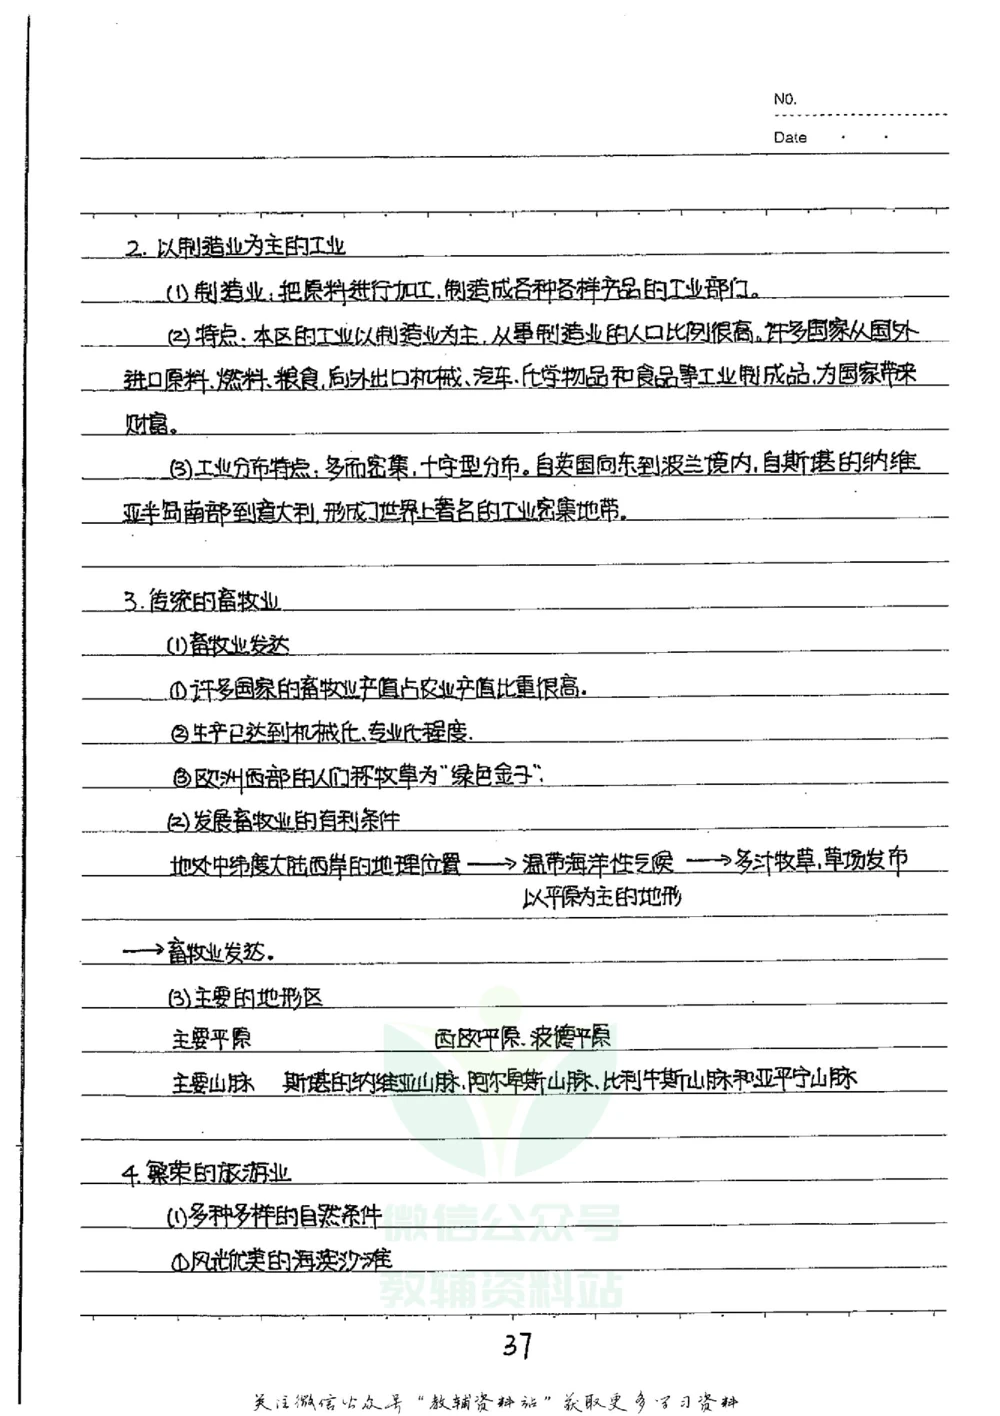 NO.
Date
2. 以制造业为主的工业
(1) 制造业:把原料进行加工,制造成各种各样产品的工业部门。
(2) 特点:本区的工业以制造业为主,从事制造业的人口比例很高。许多国家从国外
进口原料、燃料、粮食,向外出口机械、汽车、化学物品和食品等工业制成品,为国家带来
财富。
(3) 工业分布特点:多而密集,十字型分布。自英国向东到波兰境内,自斯堪的纳维
亚半岛南部到意大利,形成了世界上著名的工业密集地带。
3. 传统的畜牧业
(1) 畜牧业发达
①许多国家的畜牧业产值占农业产值比重很高。
②生产已达到机械化、专业化程度.
③欧洲西部的人们称牧草为“绿色金子”.
(2) 发展畜牧业的有利条件
地处中纬度大陆西岸的地理位置 → 温带海洋性气候 → 多汁牧草,草场发布
以平原为主的地形
→畜牧业发达。
(3) 主要的地形区
主要平原 西欧平原、波德平原
主要山脉 斯堪的纳维亚山脉、阿尔卑斯山脉、比利牛斯山脉和亚平宁山脉
4. 繁荣的旅游业
(1) 多种多样的自然条件
①风光优美的海滨沙滩
微信公众号
教辅资料站
37
关注微信公众号“教辅资料站”获取更多学习资料